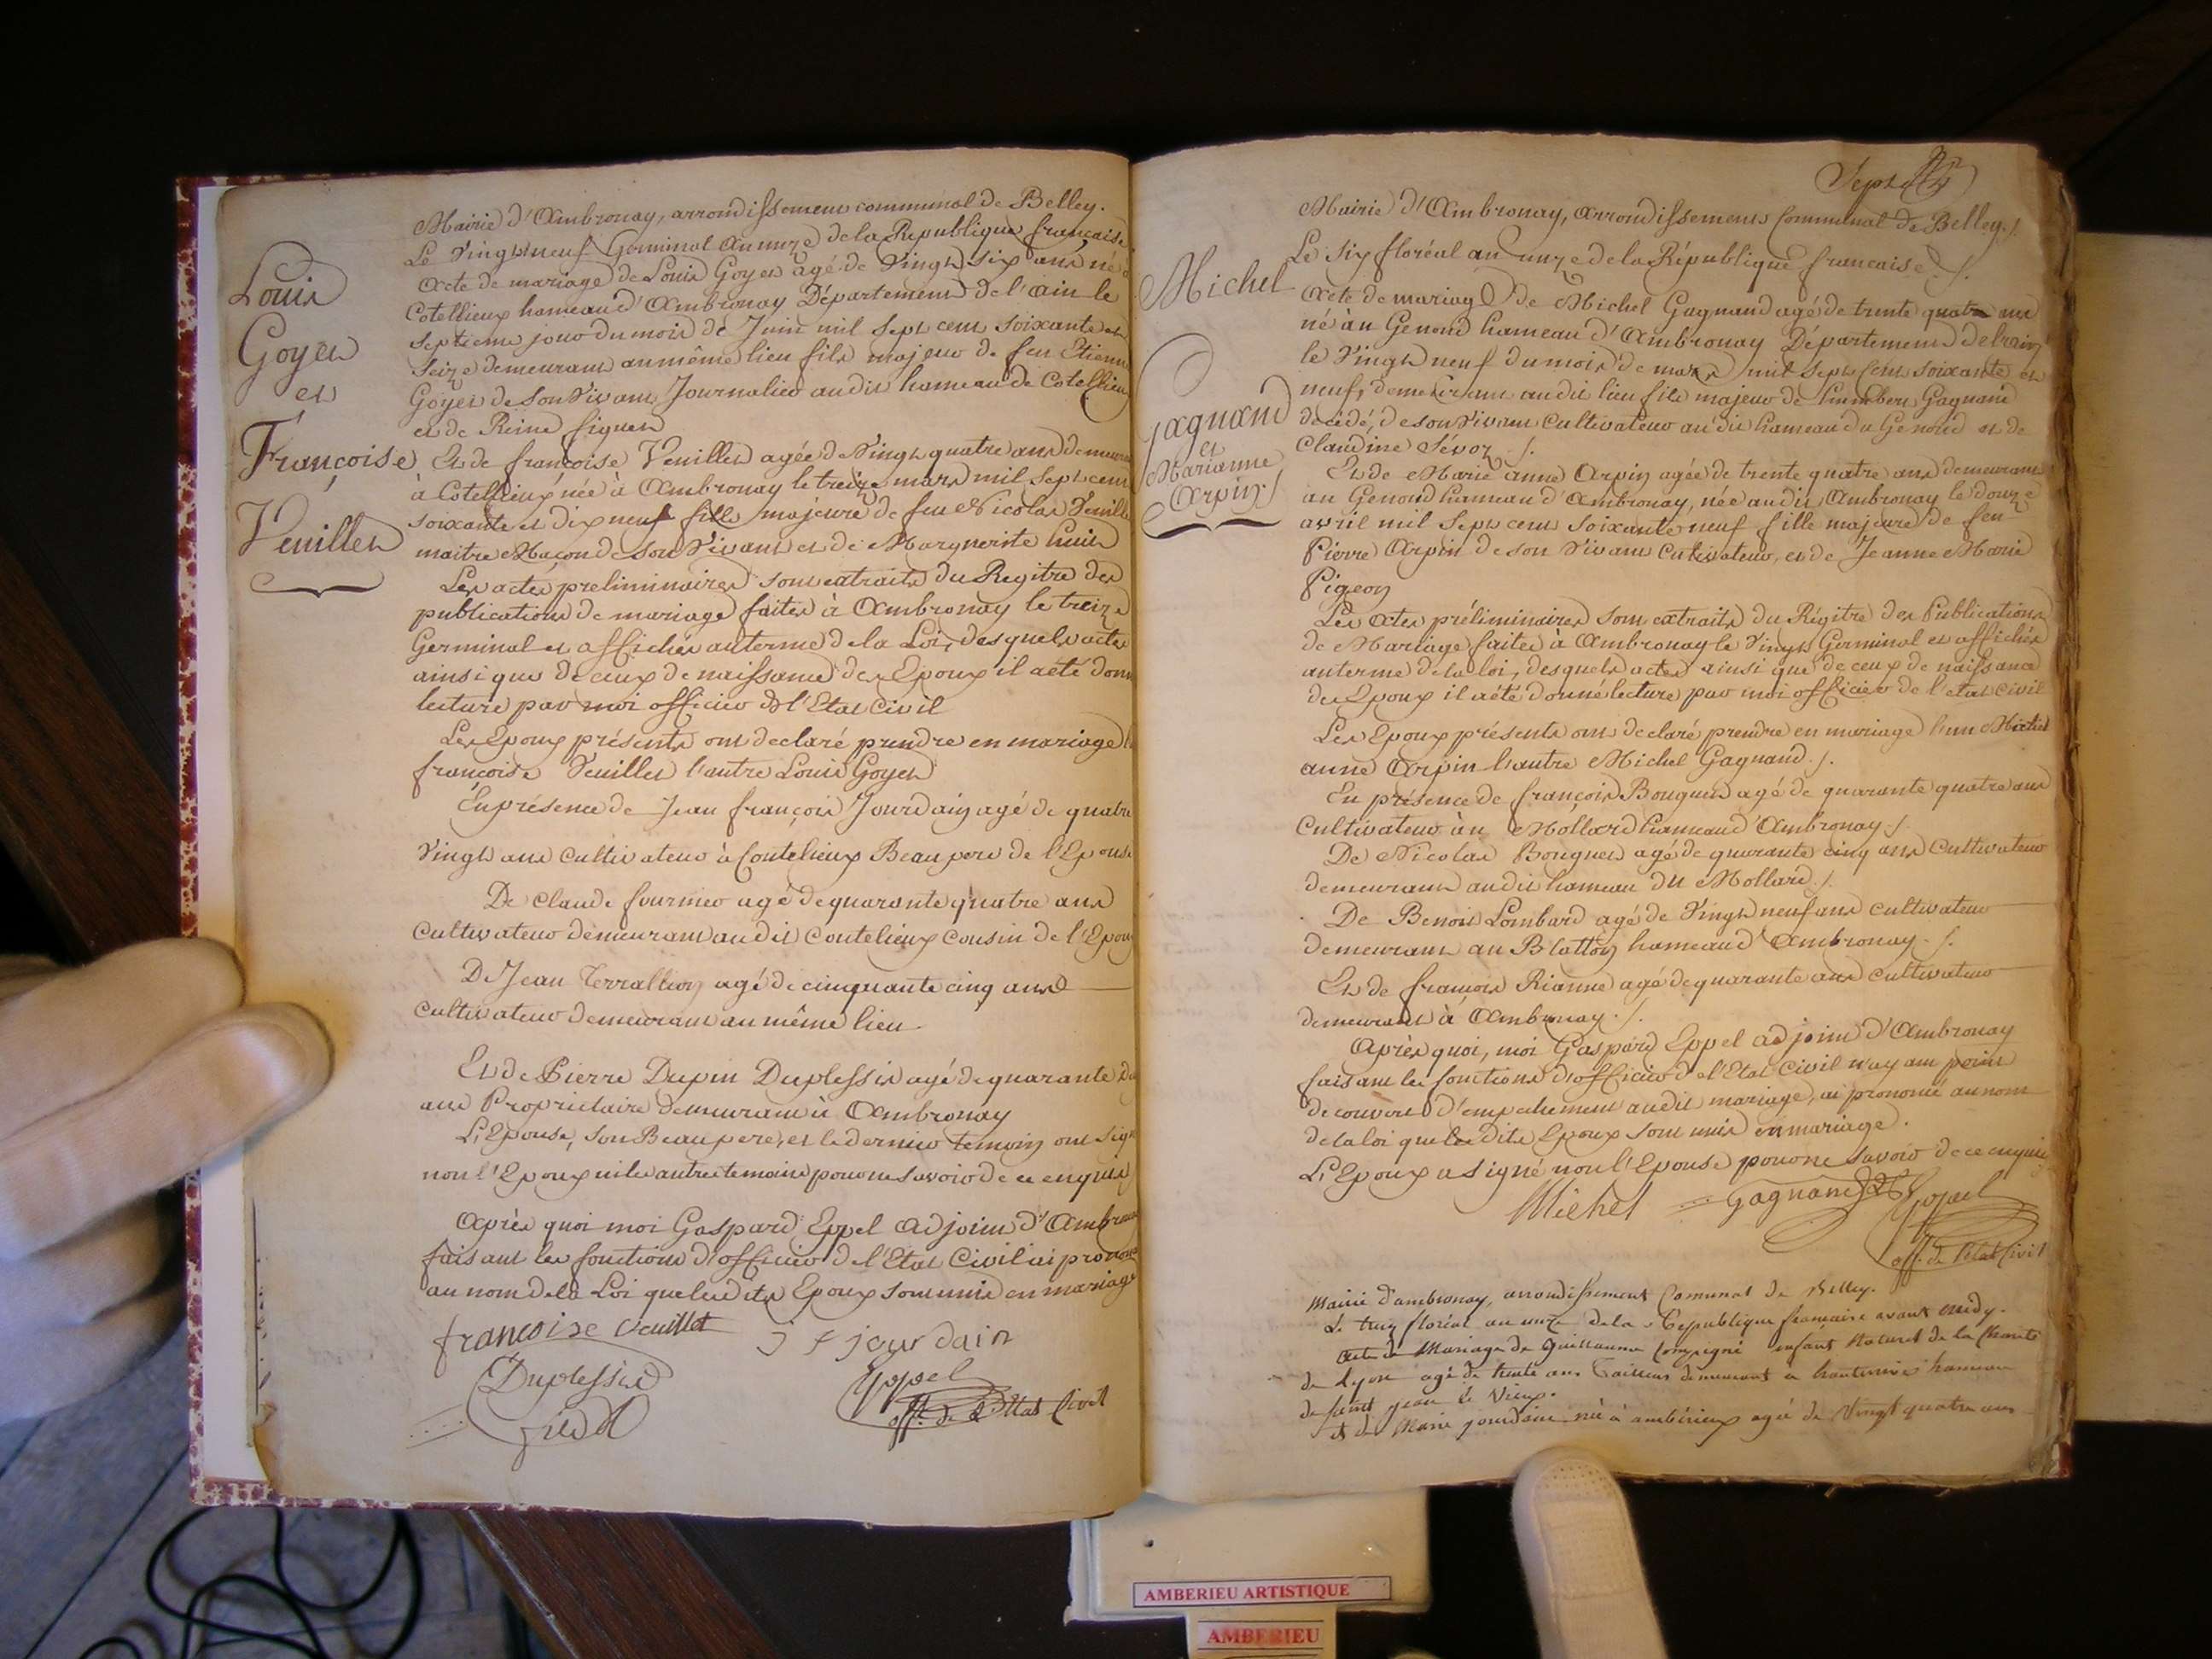 Louis
Goyet
et
Françoise
Veuillet
Mairie d'Ambronay, arrondissement communal de Belley.
Le Vingt neuf Germinal an onze de la Republique francaise
Acte de mariage de Louis Goyet agé de Vingt six ans né
Cotellieux hameau d'Ambronay Département de l'ain le
septieme jour du mois de Juin mil sept cent soixante et
seize demeurant au même lieu fils majeur de feu Etienne
Goyet de son Vivant Journalier au dit hameau de Cotellieu
et de Reine figuet
Et de françoise Veuillet agée de Vingt quatre ans demeur
à Cotellieux née à Ambronay le treize mars mil sept cent
soixante et dix neuf fille majeure de feu Nicolas Veuill
maitre Maçon de son Vivant et de Marguerite
Les actes preliminaires sont extraits du Regitre des
publications de mariage faites à Ambronay le treize
Germinal et affichés au terme de la Loi, desquels actes
ainsi que de ceux de naissance des Epoux il a été donn
lecture par moi officier de l'Etat Civil
Les Epoux présents ont declaré prendre en mariage l
françoise Veuillet l'autre Louis Goyet
En présence de Jean françois Jourdain agé de quatre
Vingt ans Cultivateur à Coutelieux Beau pere de l'Epouse
De Claude fournier agé de quarante quatre ans
Cultivateur demeurant au dit Coutelieux Cousin de l'Epou
De Jean Terraillon agé de cinquante cinq ans
Cultivateur demeurant au même lieu
Et de Pierre Dupin Duplessis agé de quarante d
ans Proprietaire demeurant à Ambronay
L'Epouse, son Beau pere, et le dernier temoin ont sign
non l'Epoux ni les autres temoins pour ne savoir de ce enquis
Après quoi moi Gaspard Eppel Adjoint d'Ambron
faisant les fonctions d'officier de l'Etat Civil ai pronon
au nom de la Loi que lesdits Epoux sont unis en mariage
francoise veuillet
j f jourdain
Duplessis
Eppel
off. de l'Etat Civil
Sept
Michel
Gagnand
et
Marianne
Arpin ./
Mairie d'Ambronay, arrondissement Communal de Belley ./.
Le six floréal an onze de la République francaise ./.
Acte de mariage de Michel Gagnand agé de trente quatre ans
né au Genoud hameau d'Ambronay Département de l'ain
le Vingt neuf du mois de mars mil sept cent soixante et
neuf, demeurant au dit lieu fils majeur de humbert Gagnand
décédé, de son Vivant Cultivateur au dit hameau du Genoud et de
Claudine Sévoz ./.
Et de Marie anne Arpin agée de trente quatre ans demeurant
au Genoud hameau d'Ambronay, née au dit Ambronay le douze
avril mil sept cent soixante neuf fille majeure de feu
Pierre Arpin de son Vivant Cultivateur, et de Jeanne Marie
Pigeon
Les Actes préliminaires sont extraits du Régitre des Publications
de Mariage faites à Ambronay le Vingt Germinal et affichés
au terme de la loi, desquels actes ainsi que de ceux de naissance
des Epoux il a été donné lecture par moi officier de l'etat Civil
Les Epoux présents ont declaré prendre en mariage l'un Marie
anne Arpin l'autre Michel Gagnand ./.
En présence de françois Bouguet agé de quarante quatre ans
Cultivateur au Mollard hameau d'Ambronay ./
De Nicolas Bouguet agé de quarante cinq ans Cultivateur
demeurant au dit hameau du Mollard ./.
De Benoit Lombard agé de Vingt neuf ans Cultivateur
demeurant au Blatton hameau d'Ambronay ./.
Et de françois Rianne agé de quarante ans Cultivateur
demeurant à Ambronay ./.
Après quoi, moi Gaspard Eppel adjoint d'Ambronay
faisant les fonctions d'officier de l'Etat Civil n'ayant point
découvert d'empechement au dit mariage, ai prononcé au nom
de la loi que lesdits Epoux sont unis en mariage.
L'Epoux a signé non l'Epouse pour ne savoir de ce enquis
Michel Gagnand
Eppel
off. de l'Etat Civil
Mairie d'ambronay, arrondissement Comunal de Belley.
Le treiz floréal an onze de la Republique francaise avant midy.
Acte de Mariage de Guillaume Compigné enfant Naturel de la Charité
de Lyon agé de trente ans Tailleur demeurant a hauterive hameau
de saint jean le Vieux.
et de Marie jourdain née à ambérieux agée de Vingt quatre ans
AMBERIEU ARTISTIQUE
AMBERIEU